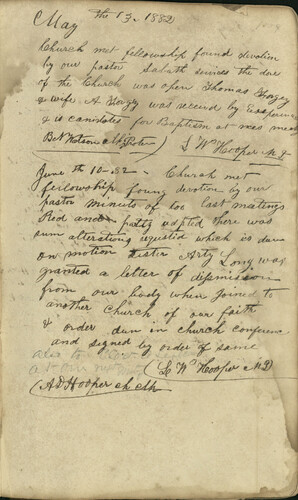 May the 13. 1882
Church met fellowship found devotion
by our pastor Sabath services the dore
of the Church was open Thomas
& wife A was receved by Experience
& is candidates for Baptism at
Ben Watson
L W Hooper M D
June th 10 - 82 - Church met
fellowship found devotion by our
pastor minuts of too last meetings
Red and adopted there was
sum alterations which is dun
on motion sister Long was
granted a letter of dismission
from our body when joined to
another Church of our faith
& order dun in church conference
and signed by order of same
L W Hooper M D
A D Hooper ch clk